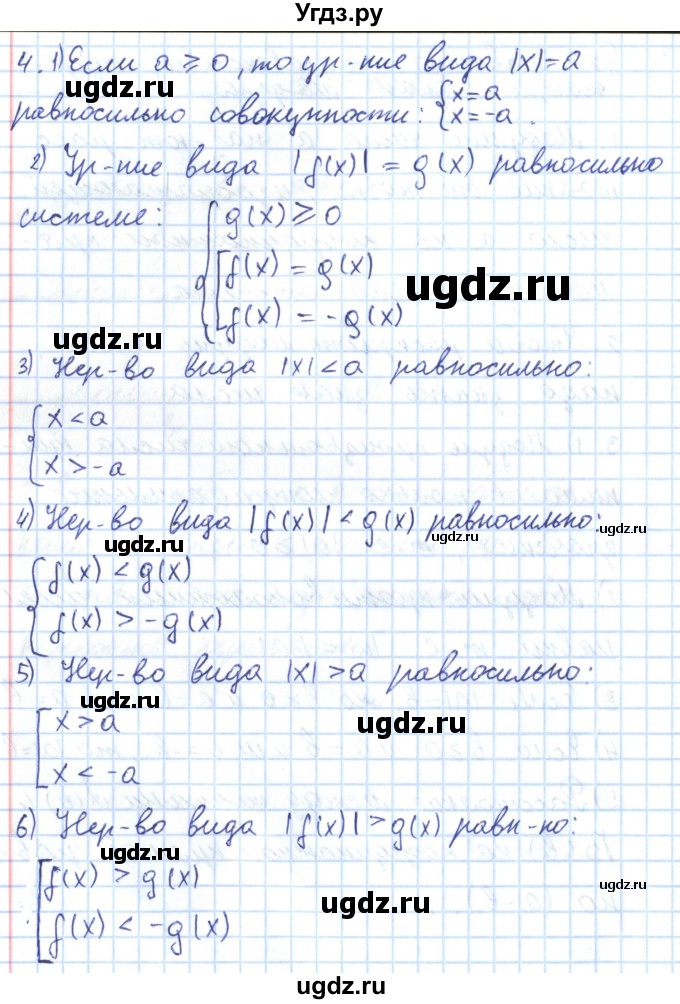 Угдз.ру
4. 1) Если a ≥ 0, то ур-ние вида |x|=a
ugdz.ru
равносильно совокупности: { x=a
x=-a .
2) Ур-ние вида |f(x)| = g(x) равносильно
системе: { g(x) ≥ 0
[ f(x) = g(x)
ugdz.ru
f(x) = -g(x)
ugdz.ru
3) Нер-во вида |x|<a равносильно:
{ x<a
x>-a
4) Нер-во вида |f(x)| < g(x) равносильно:
ugdz.ru
ugdz.ru
{ f(x) < g(x)
f(x) > -g(x)
5) Нер-во вида |x|>a равносильно:
ugdz.ru
ugdz.ru
[ x>a
x< -a
6) Нер-во вида |f(x)|>g(x) равн-но:
ugdz.ru
[ f(x) > g(x)
ugdz.ru
ugdz.ru
f(x) < -g(x)
ugdz.ru